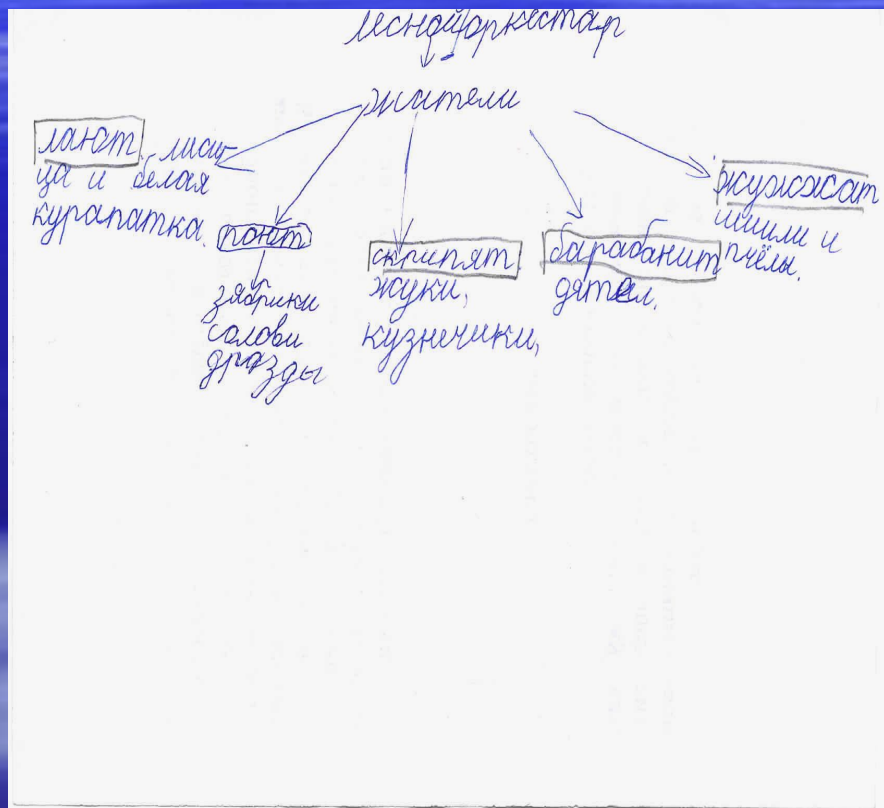 Лесной оркестар
жители
лают лиси-
ца и белая
курапатка.
поют
зяблики
солови
дрозды
скрипят
жуки,
кузнечики,
барабанит
дятел.
жужжат
шмили и
пчёлы.